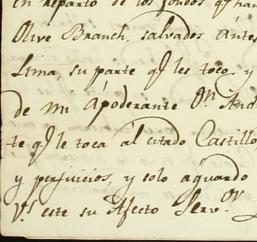 en reparto de los fondos qͤ han
Olive Branch, salvados ántes
Lima, su parte qͤ les toco y
de mi Ápoderante Dⁿ And
te qͤ le toca ál citado Castillo,
y perjuicios, y solo águardo
V.ˢ este su Afecto Serv.ᵒʳ